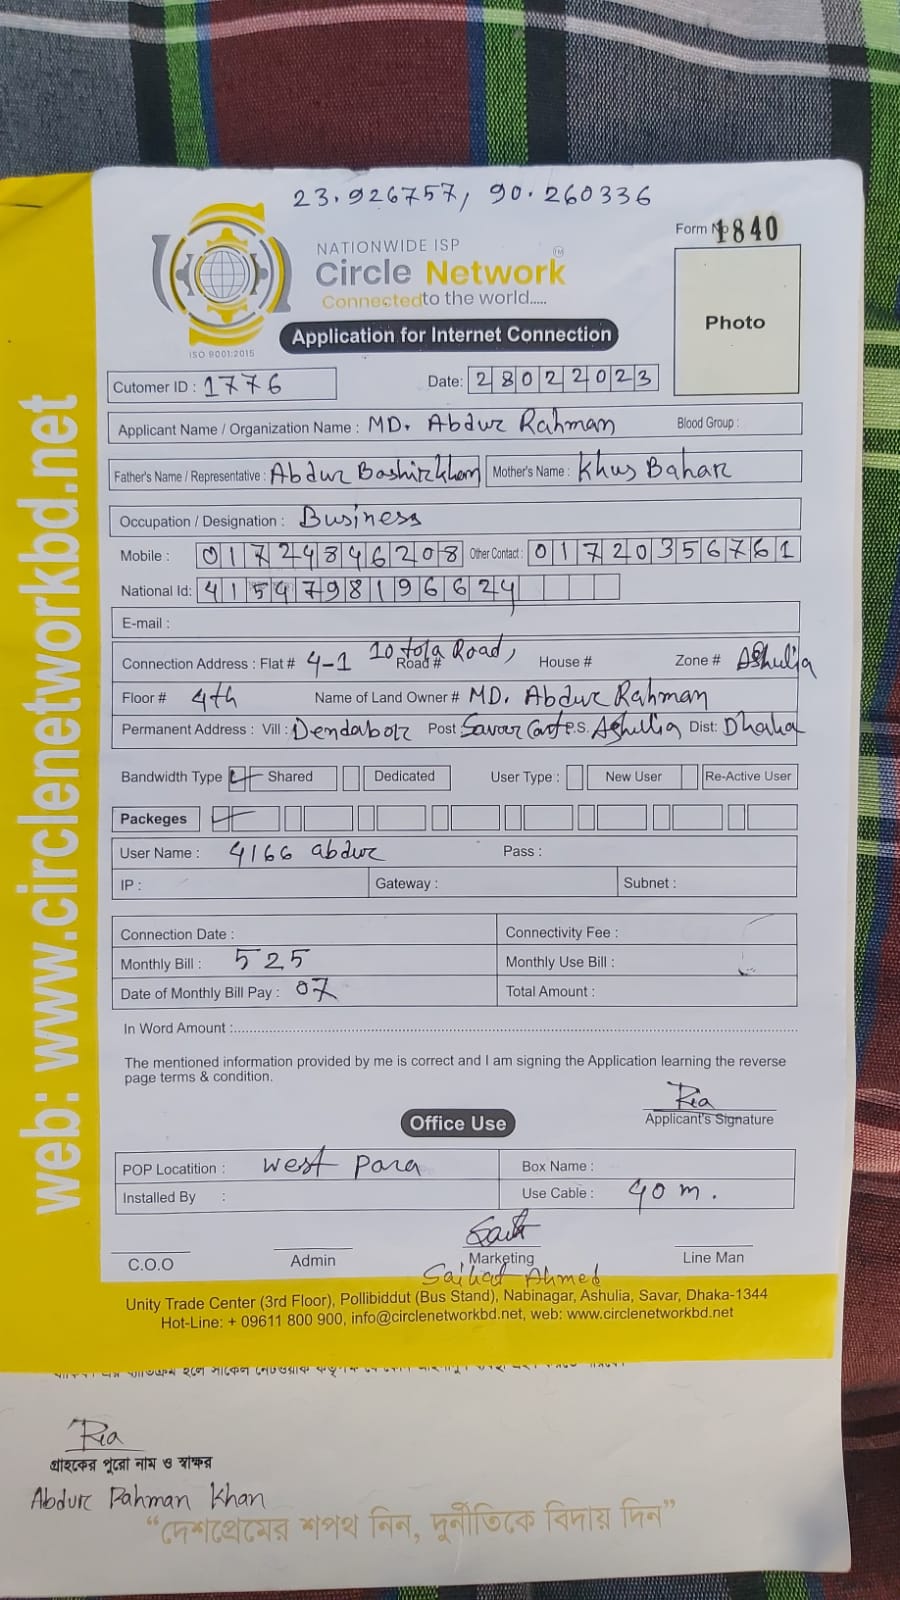 23.926757, 90.260336
Form No 1840
NATIONWIDE ISP
Circle Network TM
Connected to the world.....
ISO 9001:2015
Application for Internet Connection
Photo
Cutomer ID : 1776
Date: 28022023
Applicant Name / Organization Name : MD. Abdur Rahman Blood Group :
Father's Name / Representative : Abdur Bashir khan Mother's Name : Khus Bahar
Occupation / Designation : Business
Mobile : 01724846208 Other Contact : 01720356761
National Id: 4154798196624
E-mail :
Connection Address : Flat # 4-1 10 tola Road, Road # House # Zone # Ashulia
Floor # 4th Name of Land Owner # MD. Abdur Rahman
Permanent Address : Vill : Dendabor Post Savar P.S. Ashullia Dist: Dhaka
Bandwidth Type Shared Dedicated User Type : New User Re-Active User
Packeges
User Name : 4166 abdur Pass :
IP : Gateway : Subnet :
Connection Date : Connectivity Fee :
Monthly Bill : 525 Monthly Use Bill :
Date of Monthly Bill Pay : 07 Total Amount :
In Word Amount :
The mentioned information provided by me is correct and I am signing the Application learning the reverse
page terms & condition.
Ria
Applicant's Signature
Office Use
POP Locatition : west para Box Name :
Installed By : Use Cable : 40 m.
C.O.O Admin Marketing Line Man
Saihat Ahmed
Unity Trade Center (3rd Floor), Pollibiddut (Bus Stand), Nabinagar, Ashulia, Savar, Dhaka-1344
Hot-Line: + 09611 800 900, info@circlenetworkbd.net, web: www.circlenetworkbd.net
web: www.circlenetworkbd.net
Ria
গ্রাহকের পুরো নাম ও স্বাক্ষর
Abdur Rahman Khan
“দেশপ্রেমের শপথ নিন, দুর্নীতিকে বিদায় দিন”